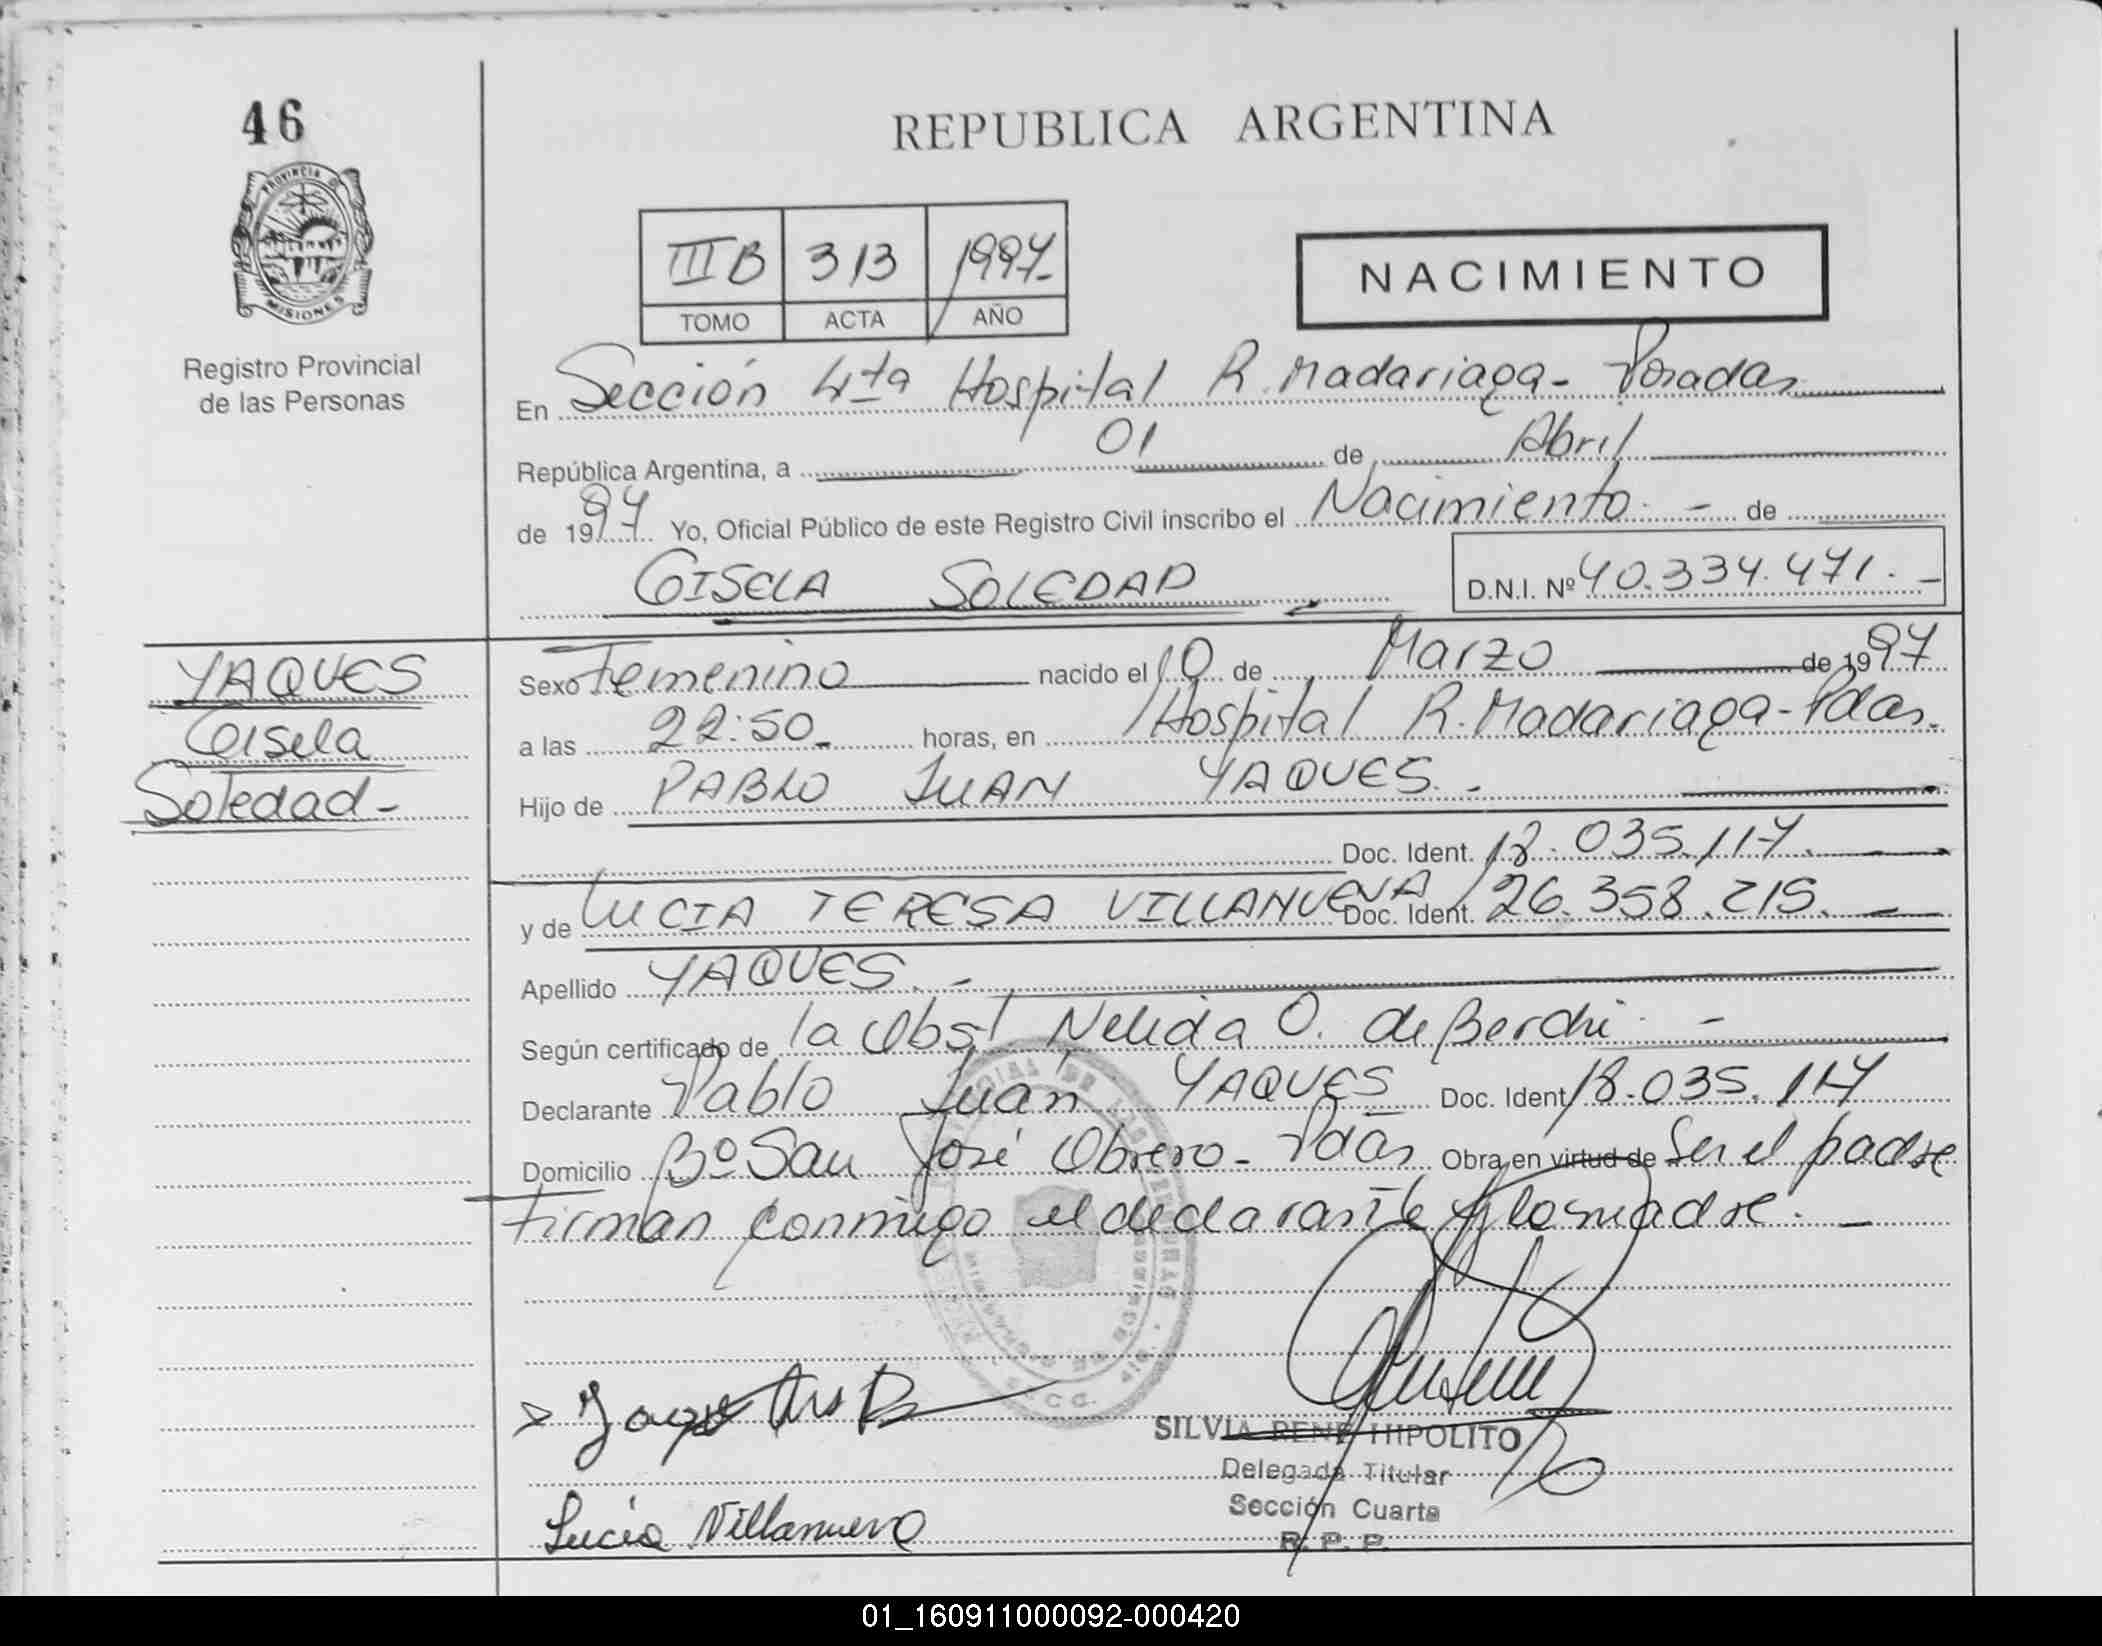 46
REPUBLICA ARGENTINA
PROVINCIA DE
MISIONES
Registro Provincial
de las Personas
III B 313 1997.-
TOMO ACTA AÑO
NACIMIENTO
En Sección 4ta Hospital R. Madariaga - Posadas
República Argentina, a 01 de Abril
de 1997 Yo, Oficial Público de este Registro Civil inscribo el Nacimiento. - de
GISELA SOLEDAD
D.N.I. Nº 40.334.471.-
YAQUES
Gisela
Soledad-
Sexo Femenino nacido el 10 de Marzo de 1997
a las 22:50 horas, en Hospital R. Madariaga - Pdas.
Hijo de PABLO JUAN YAQUES.-
Doc. Ident. 18.035.117.
y de LUCIA TERESA VILLANUEVA Doc. Ident. 26.358.215.-
Apellido YAQUES.-
Según certificado de la Obst. Nelida O. de Berchi. -
Declarante Pablo Juan YAQUES Doc. Ident 18.035.117
Domicilio Bº San José Obrero - Pdas Obra en virtud de Ser el padre
Firman conmigo el declarante y la madre. -
Lucia Villanueva
SILVIA RENE HIPOLITO
Delegada Titular
Sección Cuarta
R. P. P.
01_160911000092-000420